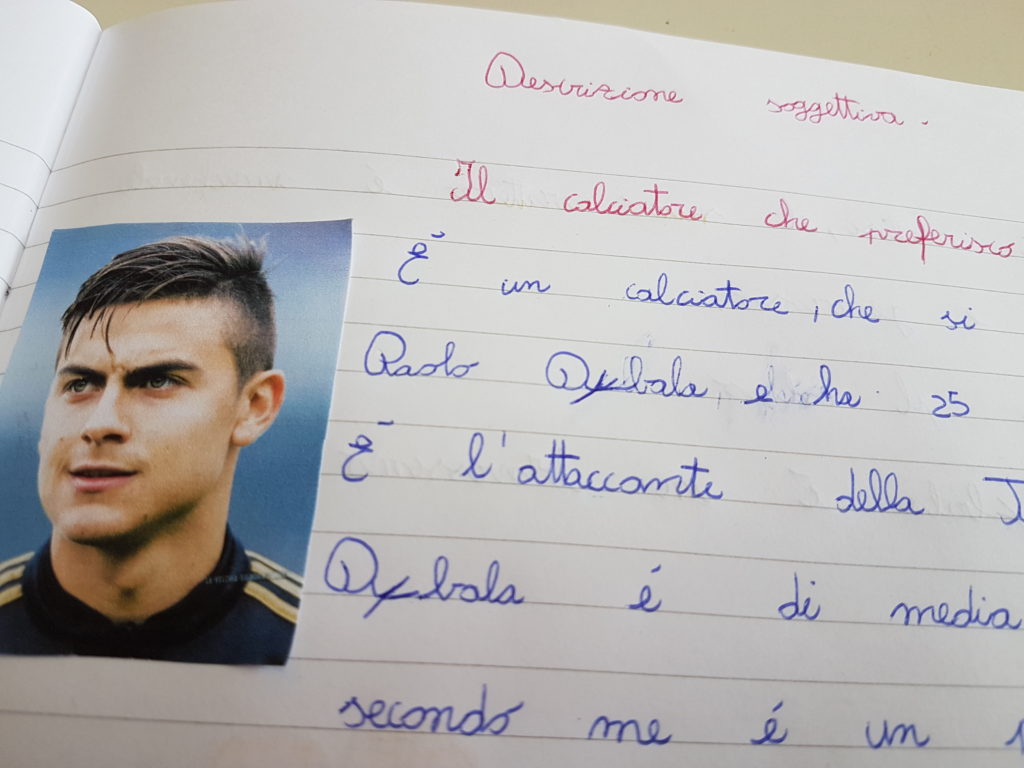 Descrizione soggettiva.
Il calciatore che preferisco
È un calciatore, che si
Paolo Dybala e ha 25
È l'attaccante della
Dybala é di media
secondo me é un